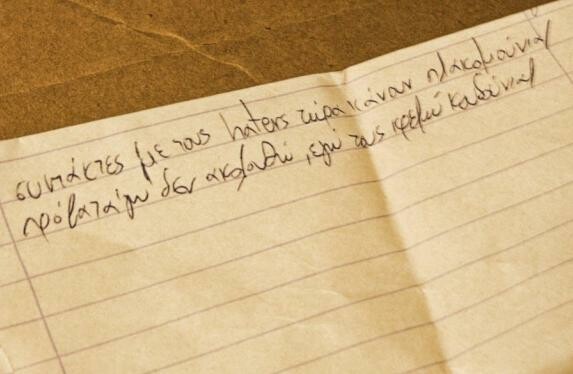 συντάκτες με τους haters τώρα κάναν πλακομούνια
πρόβατα γω δεν ακολουθώ, εγώ τους κρεμώ κουδούνια